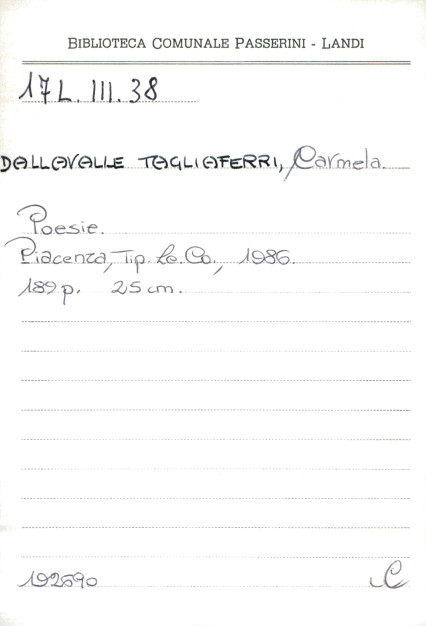 BIBLIOTECA COMUNALE PASSERINI - LANDI
17 L. III. 38
DALLAVALLE TAGLIAFERRI, Carmela.
Poesie.
Piacenza, Tip. Le. Co., 1986.
189 p. 25 cm.
192690
C